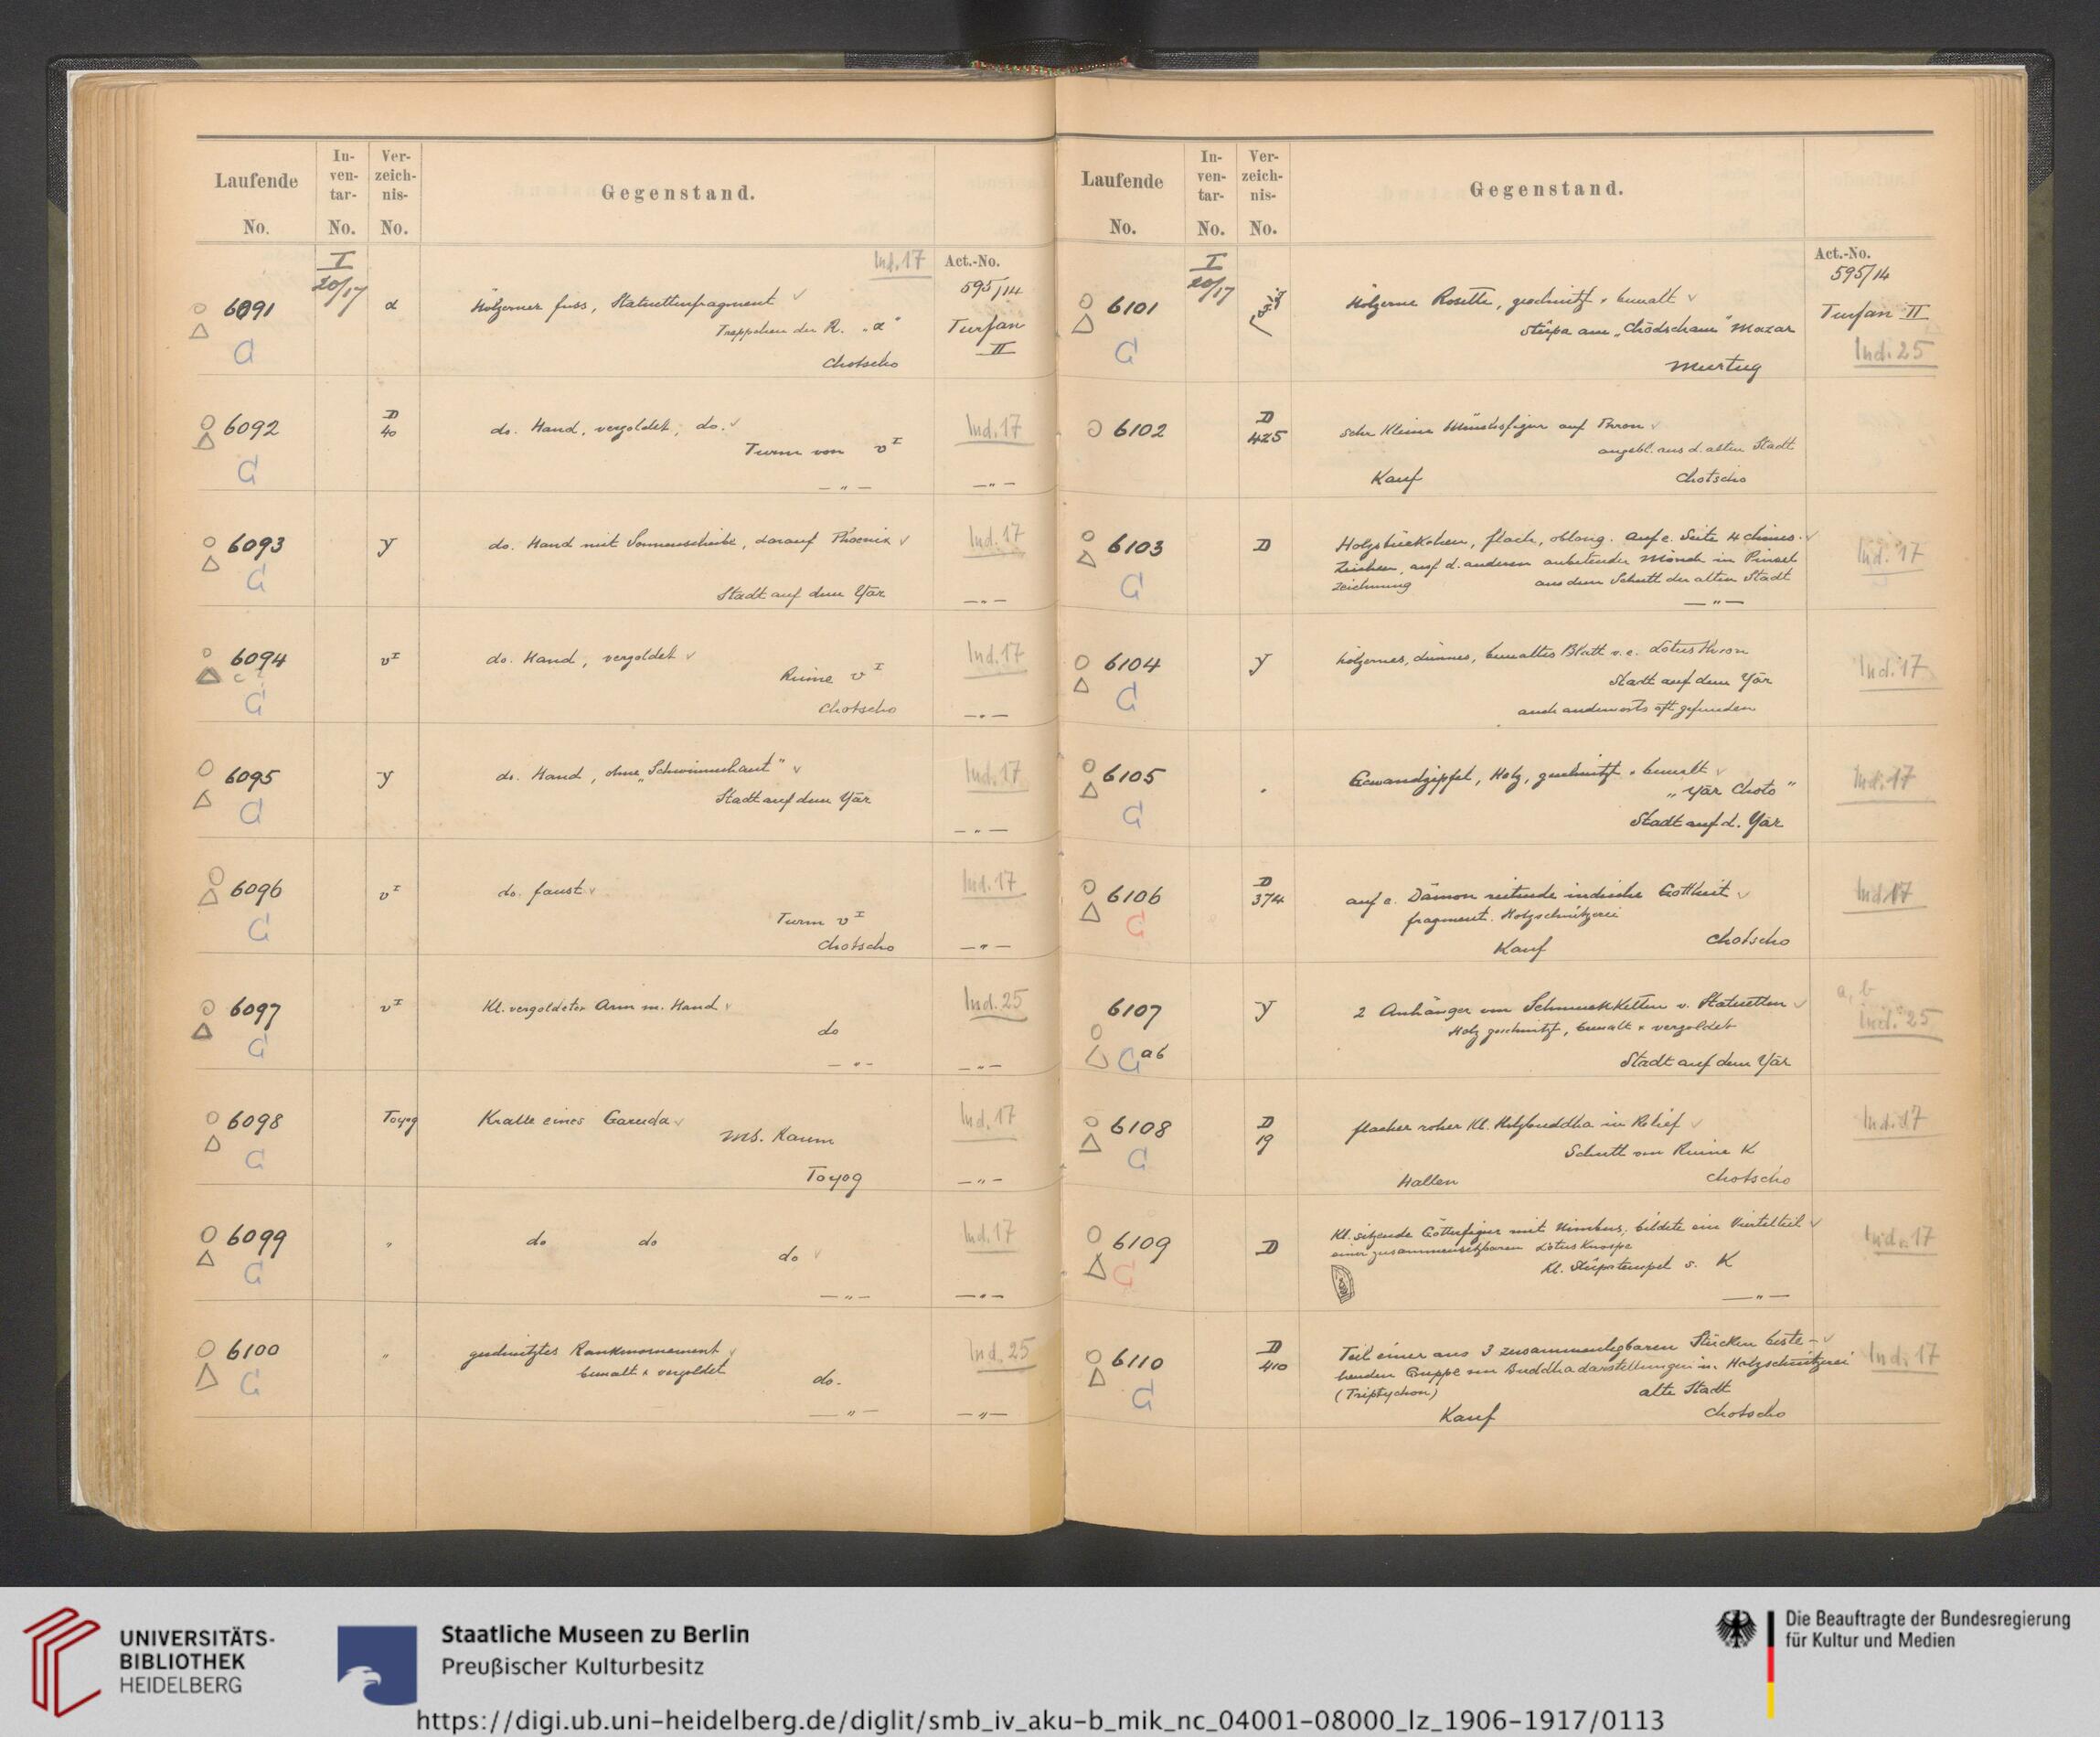 Laufende
No.
In-
ven-
tar-
No.
Ver-
zeich-
nis-
No.
Gegenstand.
Ind. 17
Act.-No.
I
20/17
595/14
6091
α
Hölzerner Fuss, Statuettenfragment
Treppchen der R. „α“
Turfan
II
Chotscho
6092
D
40
do. Hand, vergoldet, do.
Turm von v I
— " —
Ind. 17
— " —
6093
y
do. Hand mit Sonnenscheibe, darauf Phoenix
Stadt auf dem Yār
Ind. 17
— " —
6094
v I
do. Hand, vergoldet
Ruine v I
Chotscho
Ind. 17
— " —
6095
y
do. Hand, ohne „Schwimmhaut“
Stadt auf dem Yār
Ind. 17
— " —
6096
v I
do. Faust
Turm v I
Chotscho
Ind. 17
— " —
6097
v I
Kl. vergoldeter Arm m. Hand
do
— " —
Ind. 25
— " —
6098
Toyog
Kralle eines Garuda
MS. Raum
Toyog
Ind. 17
— " —
6099
"
do do
do
— " —
Ind. 17
— " —
6100
"
geschnitztes Rankenornament
bemalt & vergoldet
do.
— " —
Ind. 25
— " —
Laufende
No.
In-
ven-
tar-
No.
Ver-
zeich-
nis-
No.
Gegenstand.
Act.-No.
I
20/17
595/14
6101
Hölzerne Rosette, geschnitzt & bemalt
Stūpa am „Chōdscham“ Mazar
Murtuq
Turfan II
Ind. 25
6102
D
425
Sehr kleine Mönchsfigur auf Thron
angebl. aus d. alten Stadt
Kauf Chotscho
6103
D
Holzstückchen, flach, oblong. Auf e. Seite 4 chines.
Zeichen, auf d. anderen anbetender Mönch in Pinsel
zeichnung aus dem Schutt der alten Stadt
— " —
Ind. 17
6104
y
hölzernes, dünnes, bemaltes Blatt v. e. Lotus thron
Stadt auf dem Yār
auch anderwärts oft gefunden
Ind. 17
6105
"
Gewandzipfel, Holz, geschnitzt & bemalt
„Yār Choto“
Stadt auf d. Yār
Ind. 17
6106
D
374
auf e. Dämon reitende indische Gottheit
fragment. Holzschnitzerei
Kauf Chotscho
Ind. 17
6107
ab
y
2 Anhänger von Schmuckketten v. Statuetten
Holz geschnitzt, bemalt & vergoldet
Stadt auf dem Yār
a, b
Ind. 25
6108
D
19
flacher roher kl. Holzbuddha in Relief
Schutt von Ruine K
Hallen Chotscho
Ind. 17
6109
D
Kl. sitzende Götterfigur mit Nimbus, bildete ein Viertelteil
einer zusammensetzbaren Lotus Knospe
Kl. Stūpatempel s. K
— " —
Ind. 17
6110
D
410
Teil einer aus 3 zusammenlegbaren Stücken beste-
henden Gruppe von Buddhadarstellungen in Holzschnitzerei
(Triptychon) alte Stadt
Kauf Chotscho
Ind. 17
UNIVERSITÄTS-
BIBLIOTHEK
HEIDELBERG
Staatliche Museen zu Berlin
Preußischer Kulturbesitz
Die Beauftragte der Bundesregierung
für Kultur und Medien
https://digi.ub.uni-heidelberg.de/diglit/smb_iv_aku-b_mik_nc_04001-08000_lz_1906-1917/0113